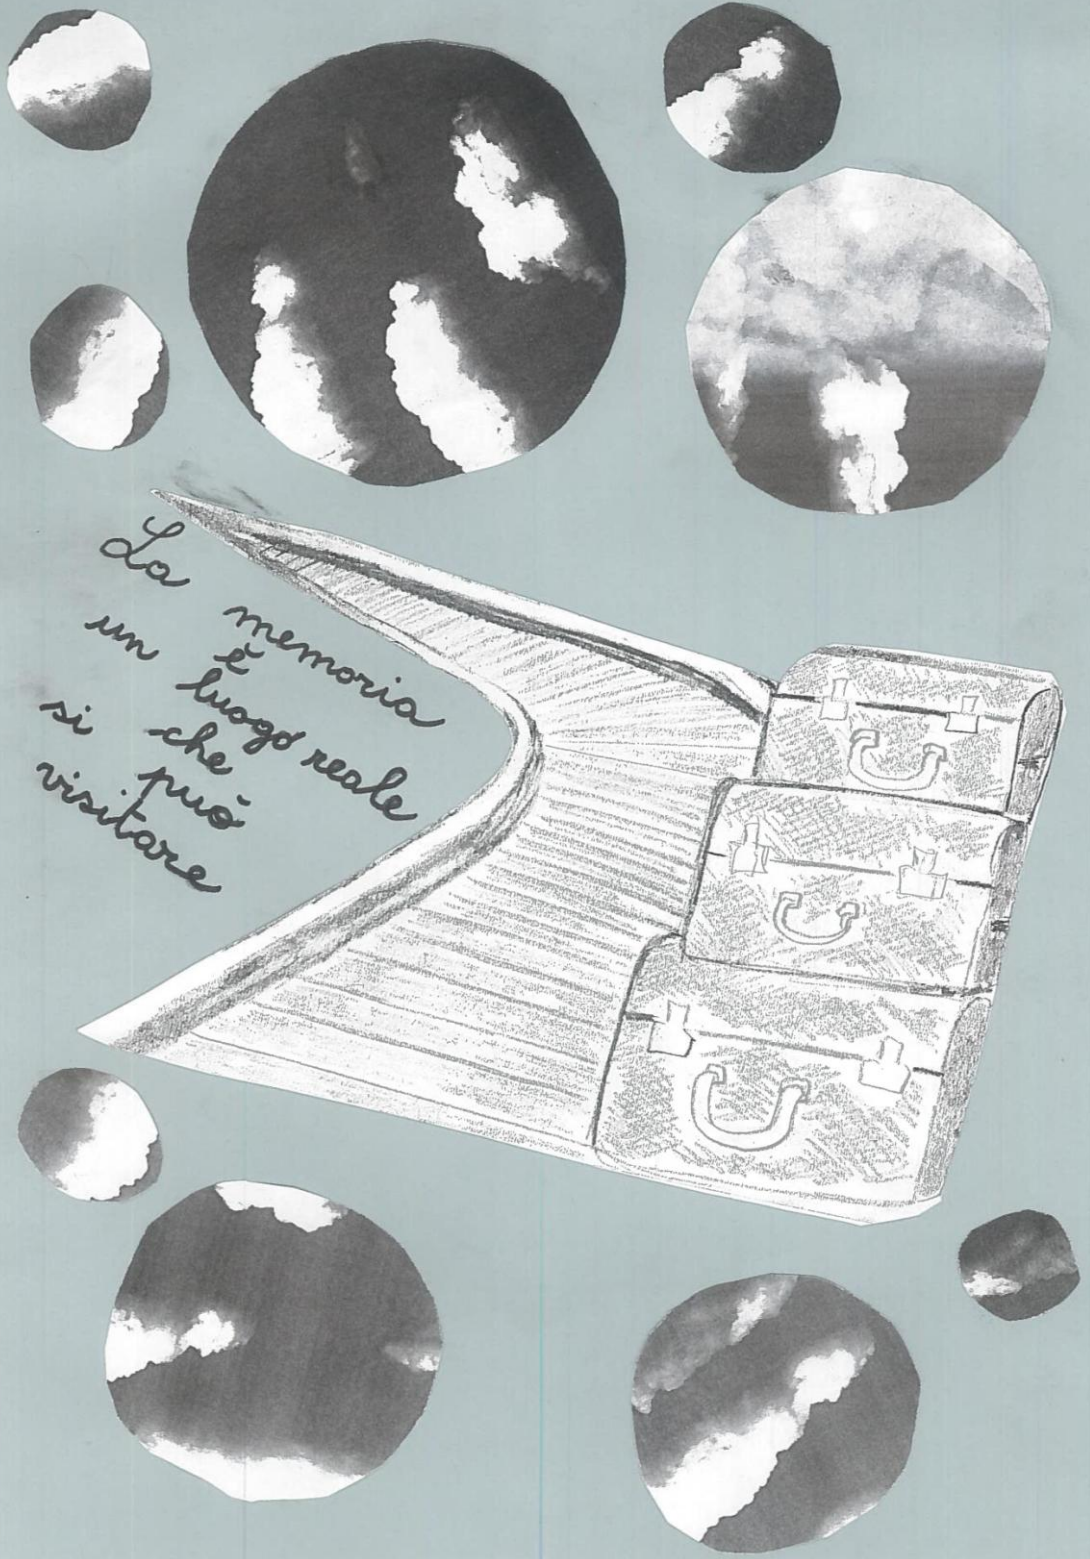 La memoria
è
un luogo reale
che
si può
visitare